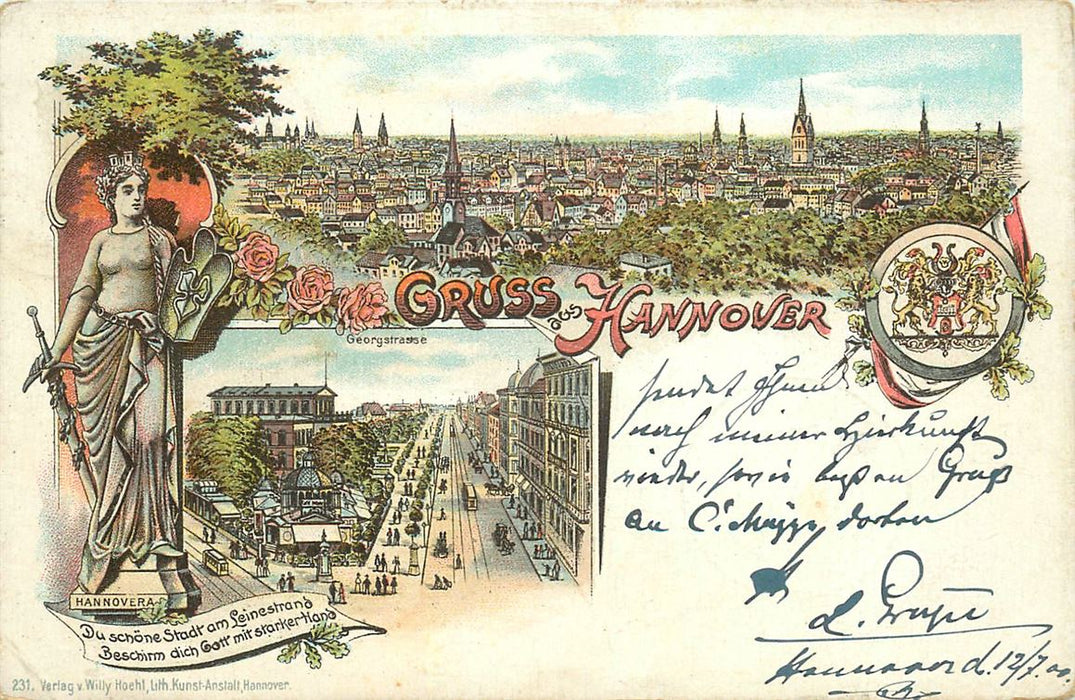 GRUSS aus HANNOVER
Georgstrasse
sendet Ihnen
nach meiner Hierkunft
wieder, sowie besten Gruß
an C. dorten
d.
Hannover d. 12/7. 00
HANNOVERA
Du schöne Stadt am Leinestrand
Beschirm dich Gott mit starker Hand
231. Verlag v. Willy Hoehl, Lith. Kunst-Anstalt, Hannover.